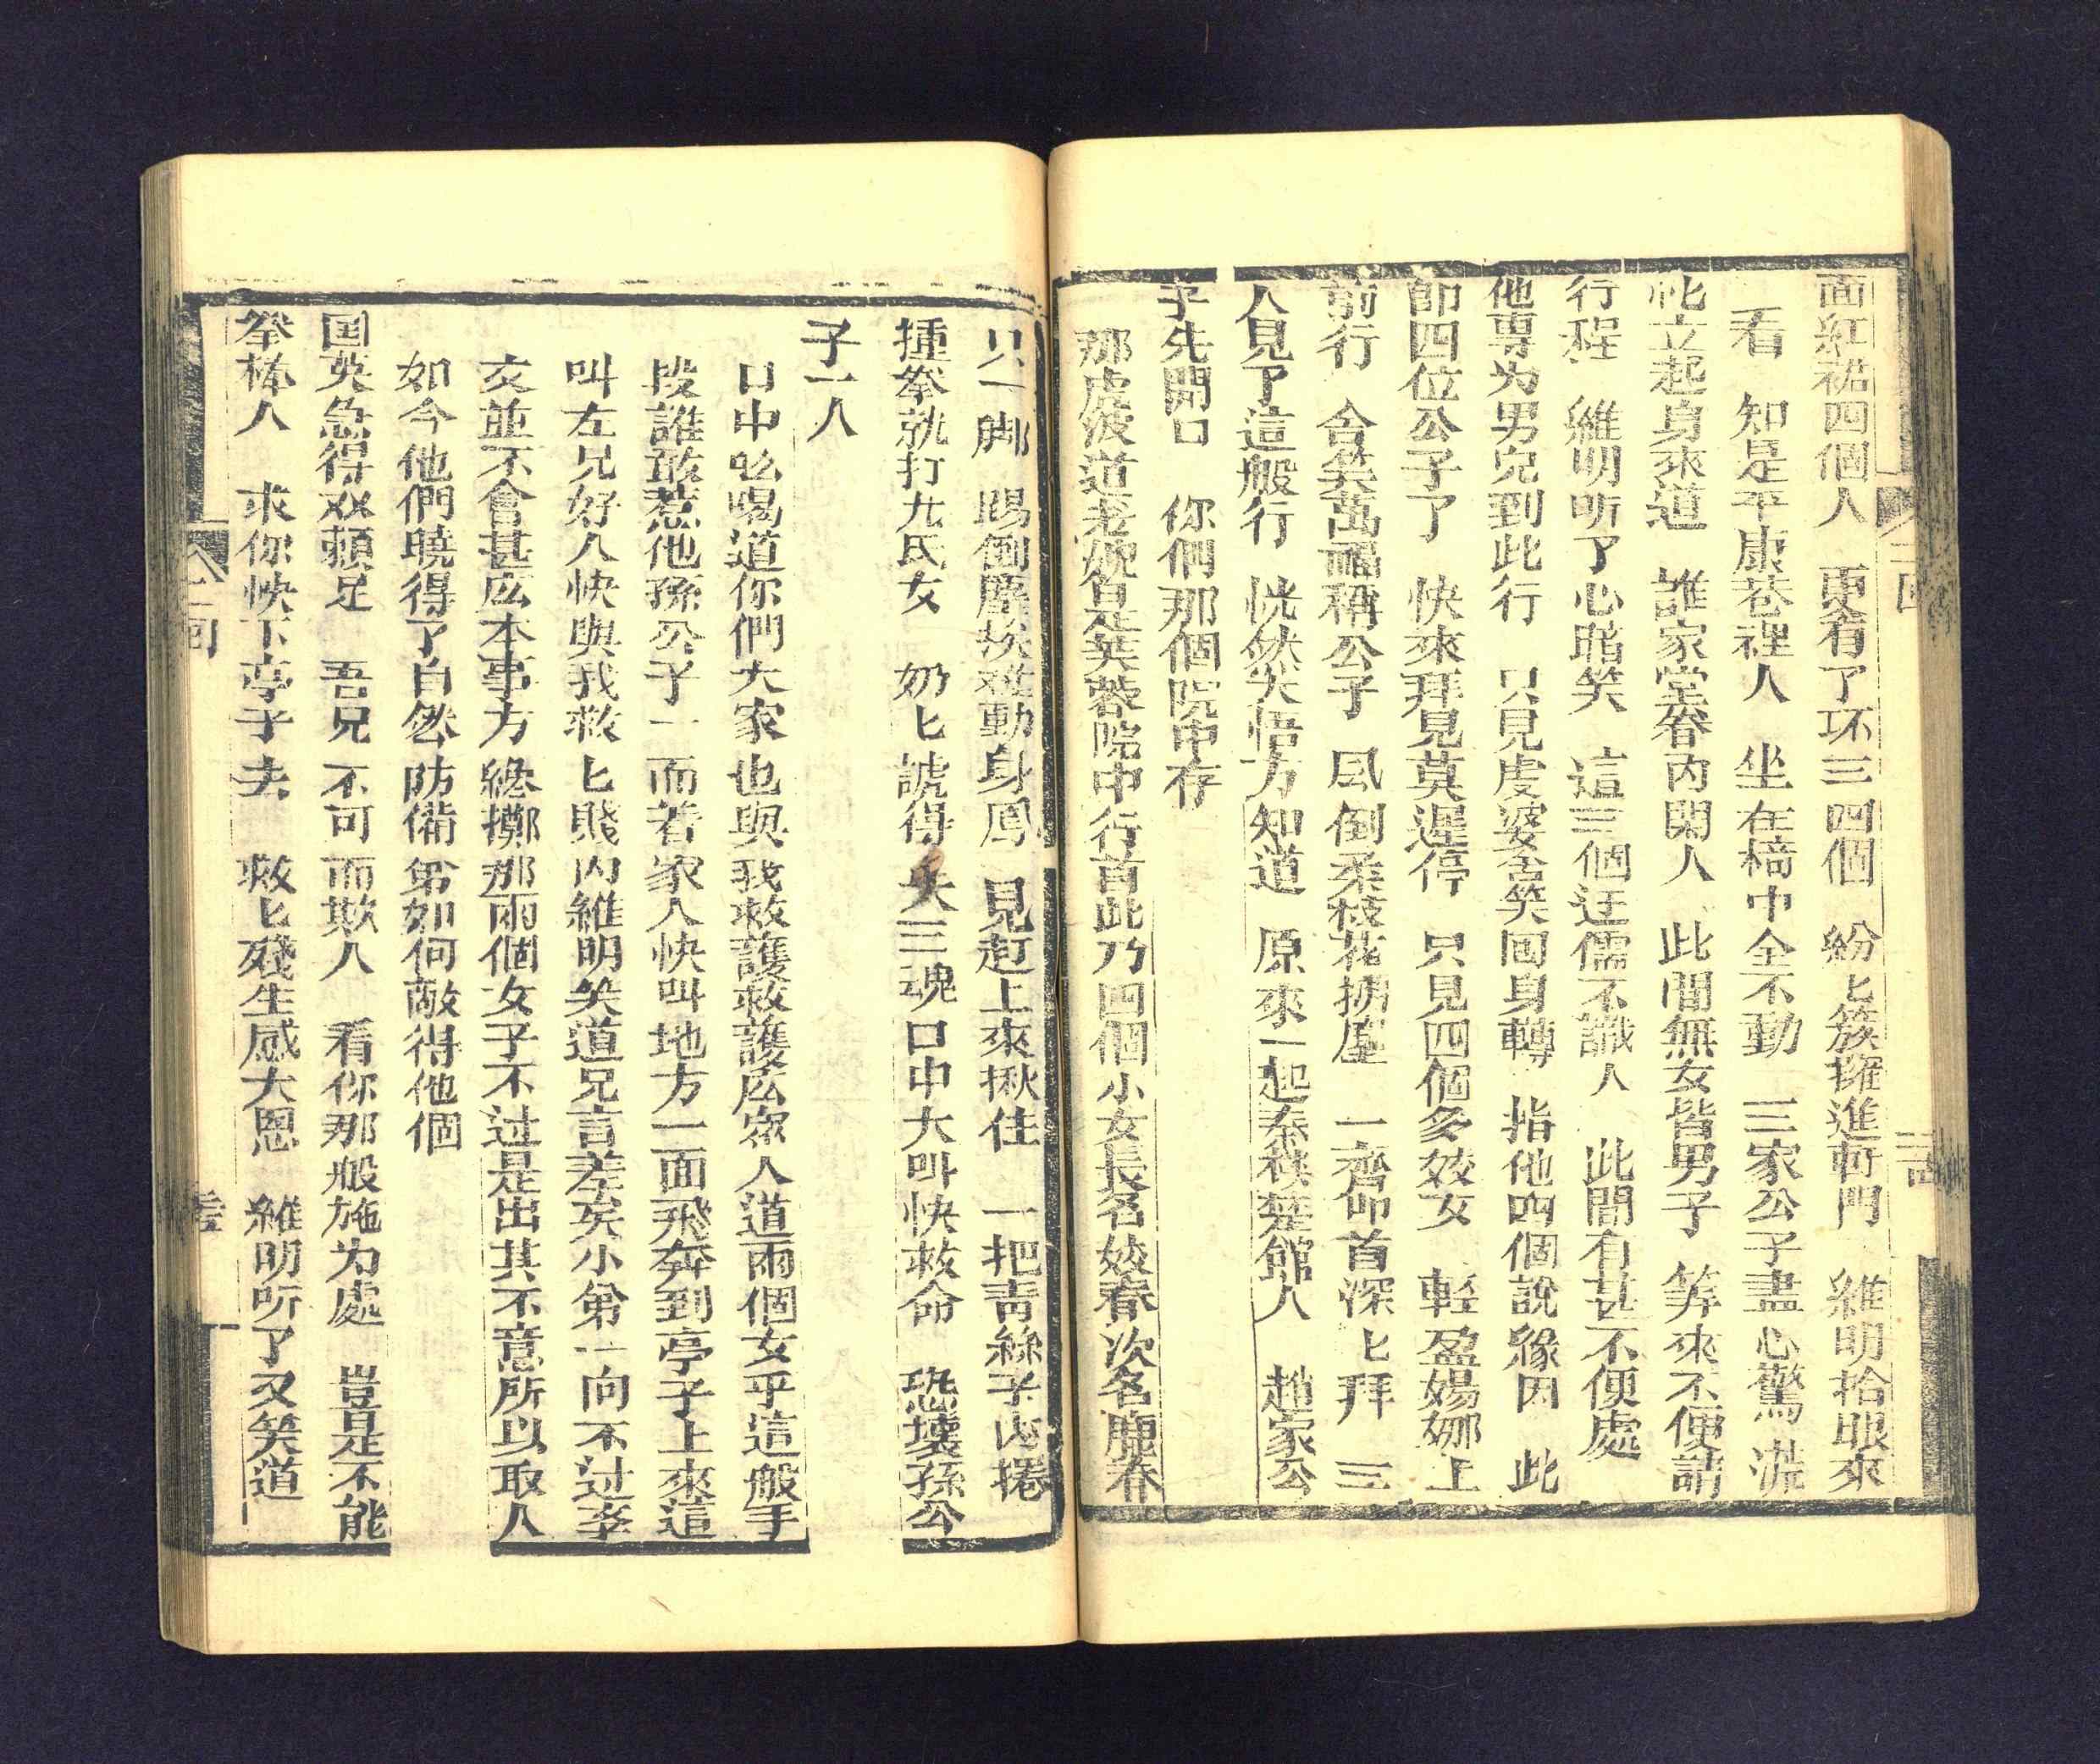 面紅裙四個人　更有了环三四個　紛匕簇擁進軒門　維明抬眼來
看　知是平康巷裡人　坐在椅中全不動　三家公子盡心驚　混
忙立起身來道　誰家堂眷內閑人　此間無女皆男子　筭來不便請
行程　維明听了心暗笑　這三個迂儒不識人　此間有甚不便處
他專为男兒到此行　只見虔婆含笑回身轉　指他四個說緣因　此
即四位公子了　快來拜見莫遲停　只見四個多姣女　輕盈嬝娜上
前行　含笑萬福稱公子　風倒柔枝花拂塵　一齊叩首深匕拜　三
人見了這般行　恍然大悟方知道　原來一起秦樓楚館人　趙家公
子先開口　你們那個院中存
那虔婆道老媳自是芙蓉院中行首此乃四個小女長名姣春次名麗春
只一脚　踢倒塵埃難動身鳳　見赶上來揪住　一把青絲手內捲
揰拳就打尤氏女　奶匕諕得失三魂口中大叫快救命　恐壞孫公
子一人
口中吆喝道你們大家也與我救護救護庅家人道兩個女平這般手
段誰敢惹他孫公子一面着家人快叫地方一面飛奔到亭子上來這
叫左兄好人快與我救匕賤內維明笑道兄言差矣小弟一向不过拳
友並不會甚庅本事方纔擲那兩個女子不过是出其不意所以取人
如今他們曉得了自然防備弟如何敵得他個
国英急得双頓足　吾兄不可而欺人　看你那般施为處　豈是不能
拳棒人　求你快下亭子去　救匕殘生感大恩　維明听了又笑道